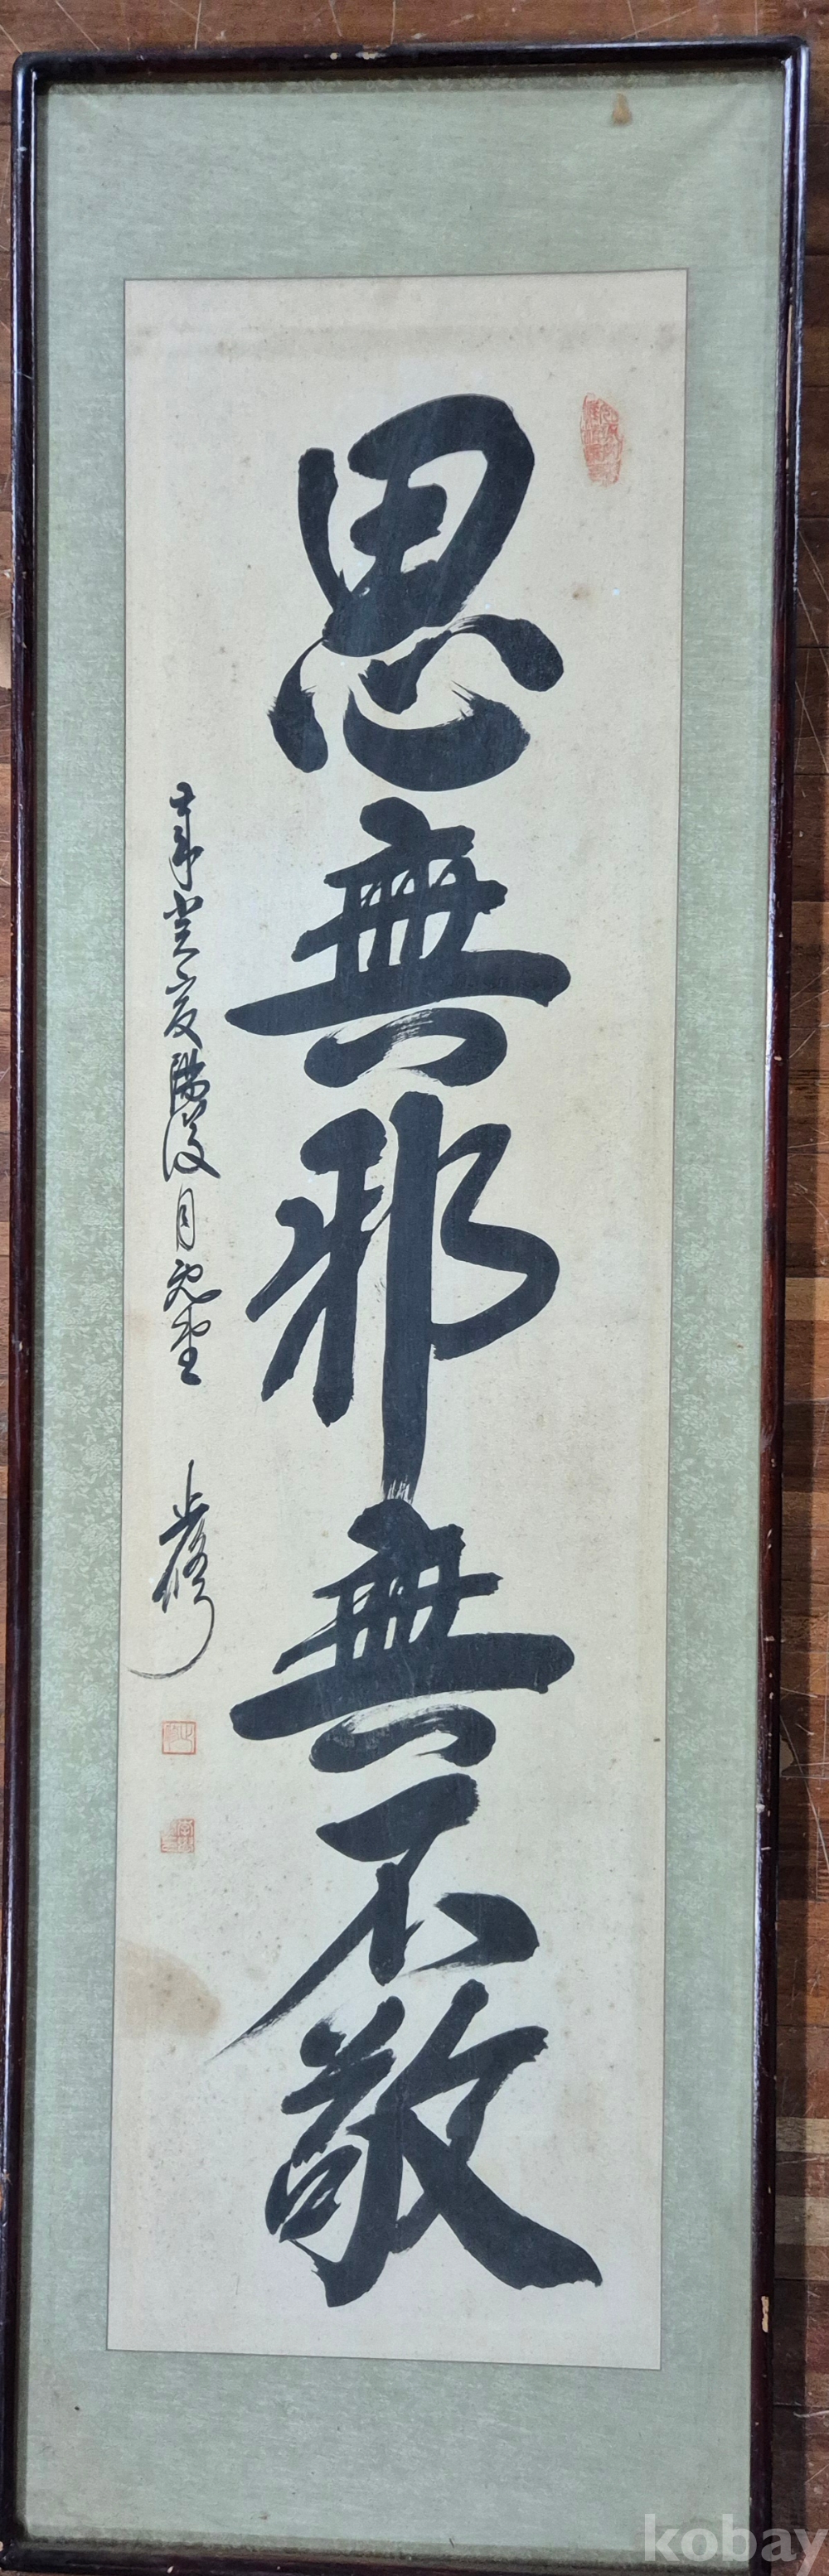 思無邪無不敬
癸亥陽復月
kobay